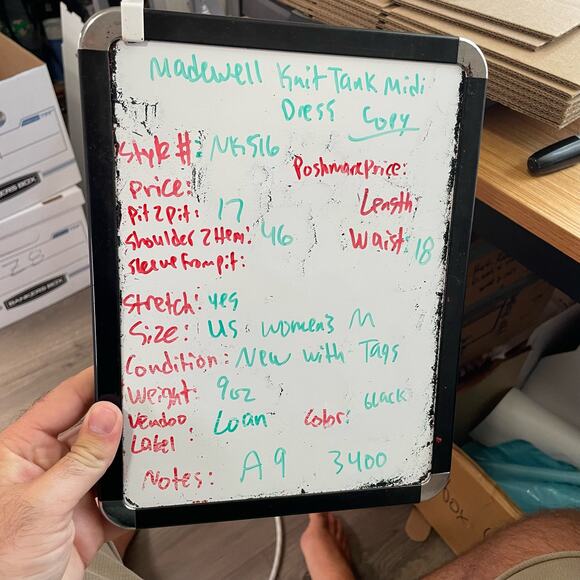 Madewell Knit Tank Midi
Dress Copy
Style #: NK516
Poshmark Price:
Price:
Length:
Pit 2 pit: 17
Shoulder 2 Hem: 46
Waist: 18
Sleeve From pit:
Stretch: yes
Size: US women's M
Condition: New with Tags
Weight: 9oz
black
Vendoo Loan Color:
Label:
Notes: A9 3400
BANKERS BOX
28
BANKERS BOX
BOX